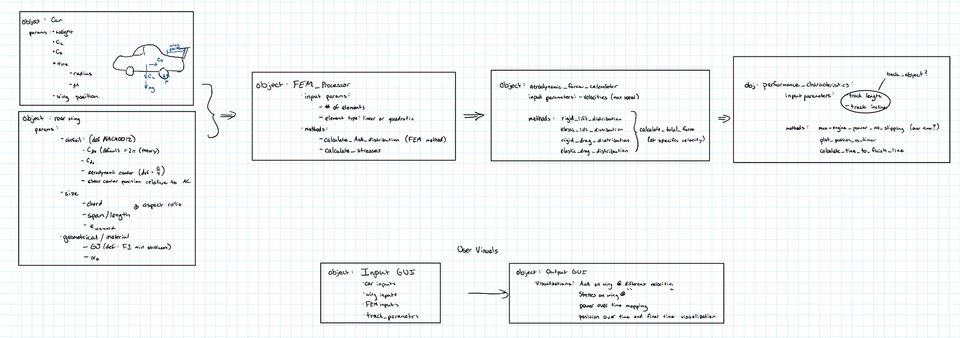 object: Car
params: • weight
• CL
• CD
• tire
- radius
- μ
• wing position
CD
CL
mg
object: rear wing
params:
• airfoil (def NACA0012)
(default = 2π (theory)
- aerodynamic center (def:
- shear center position relative to AC
• size
- chord
* aspect ratio
- span/length
• geometrical/material
- GJ (def: F1 min stiffness)
- α₀
object: FEM_Processor
input params:
- # of elements
- element type: linor or quadratic
• methods:
- calculate_AoA_distribution (FEM method)
- calculate_stresses
object: aerodynamic_force_calculator
input parameters: - velocities (max speed)
methods: rigid_lift_distribution
elastic_lift_distribution
rigid_drag_distribution
elastic_drag_distribution
calculate_total_force
(at specific velocity)
track_object?
obj: performance_characteristics:
input parameters:
- track length
- track incline
methods: max_engine_power_no_slipping (over time?)
plot_position_vs_time
calculate_time_to_finish_line
User Visuals
object: Input GUI
• car inputs
• wing inputs
• FEM inputs
• track_parameters
object: Output GUI
Visualizations: AoA on wing @ different velocities
Stress on wing @ " "
power over time mapping
position over time and final time visualization